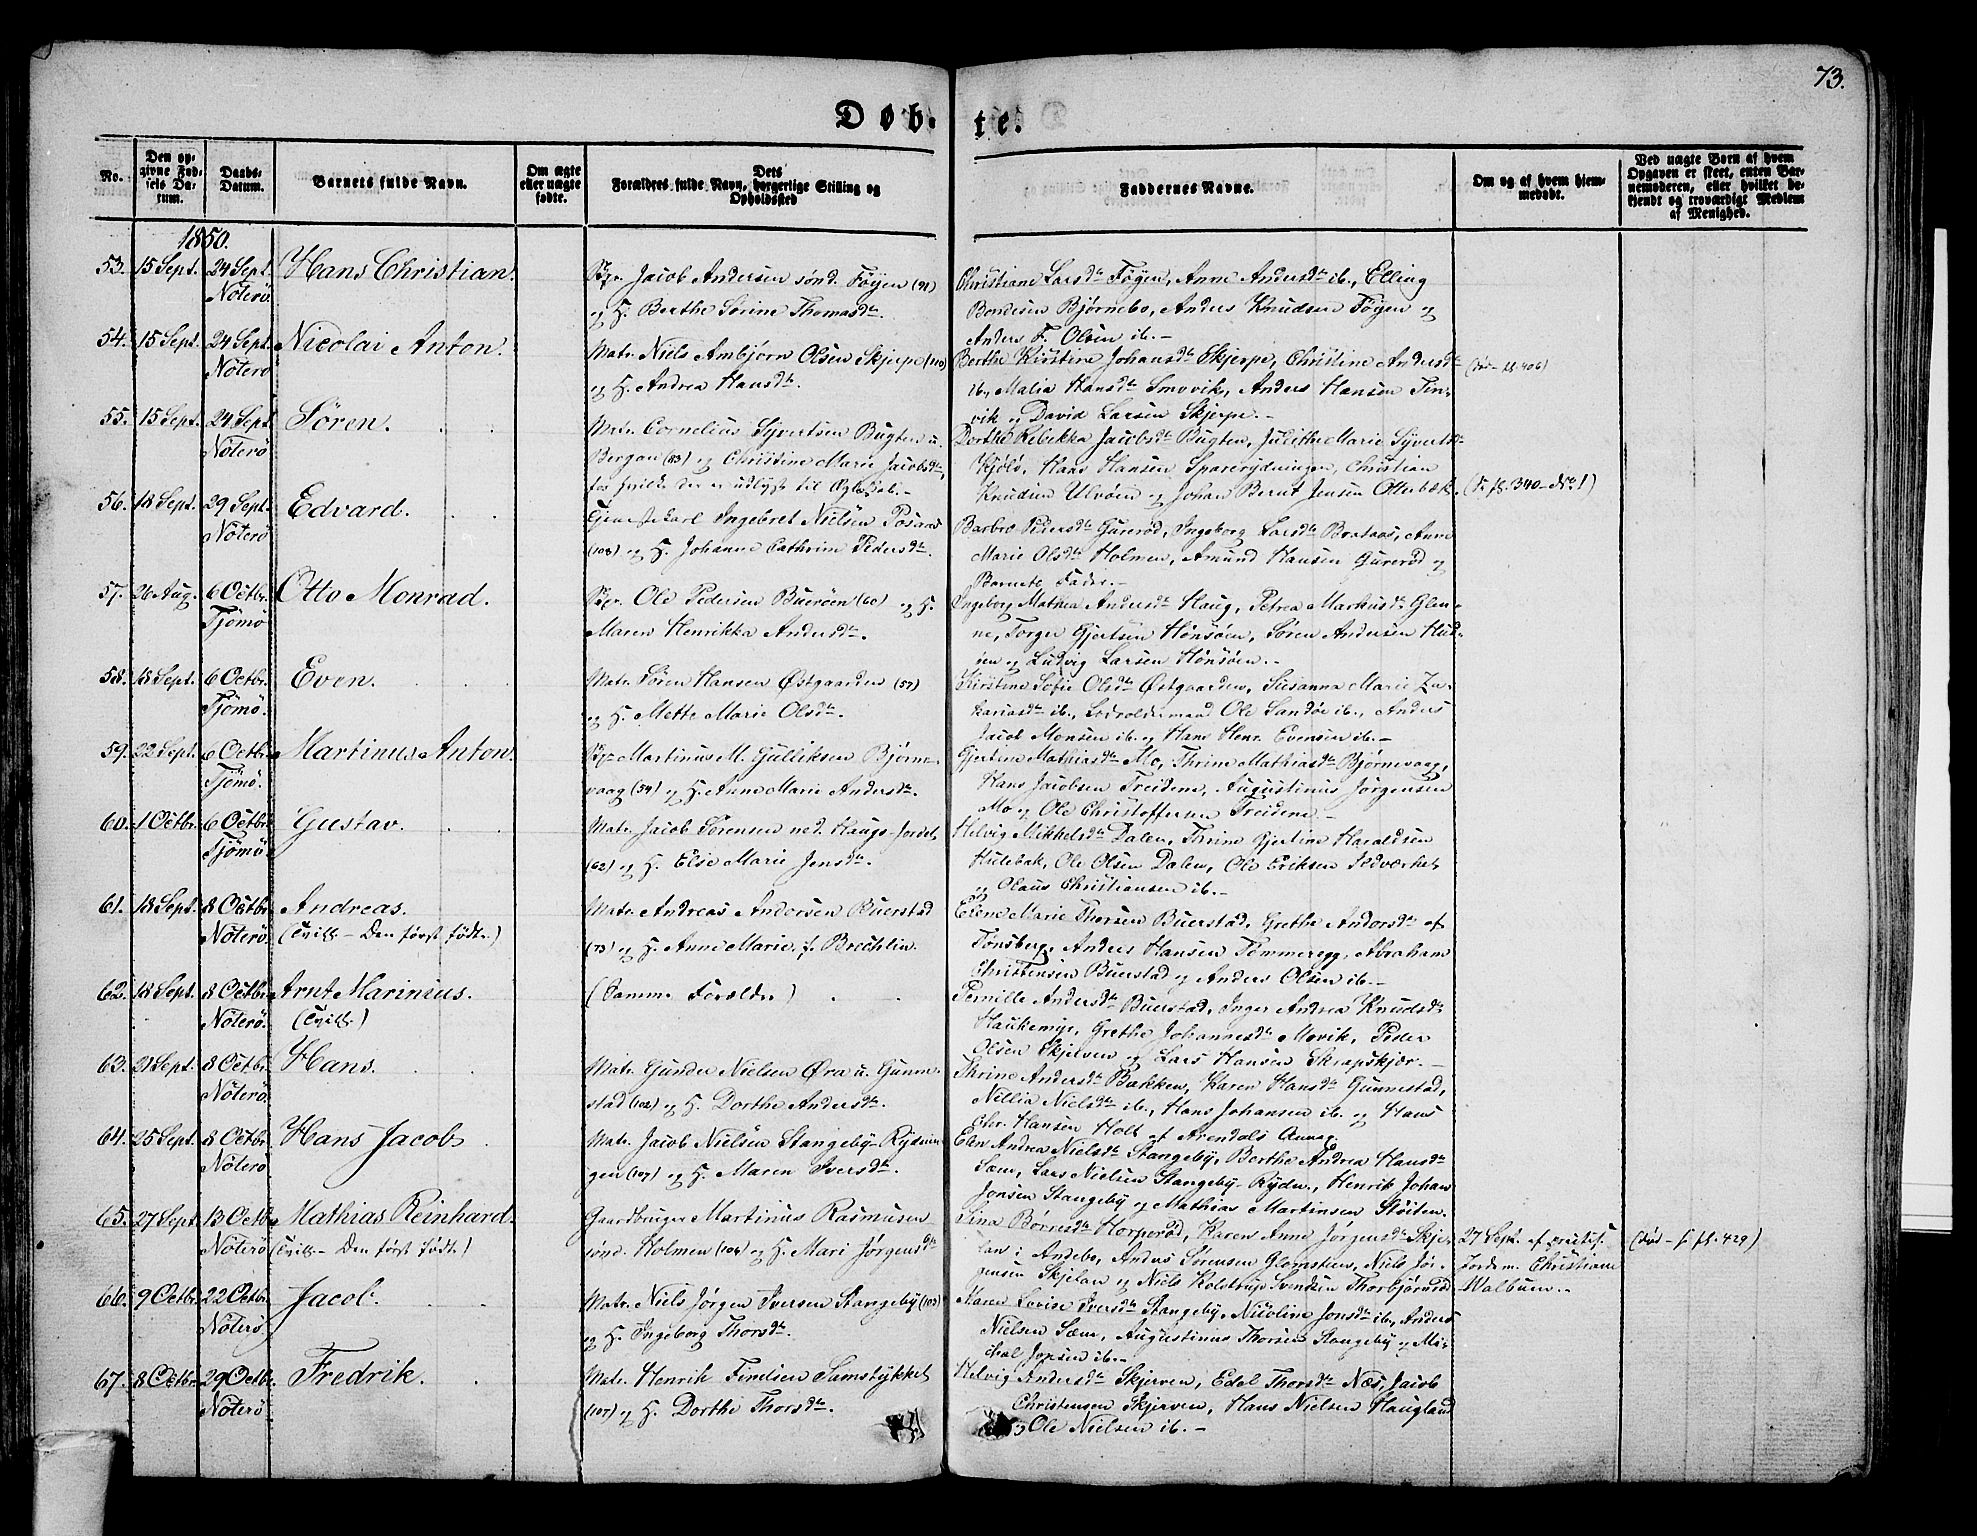 73.
Døb- te.
No.
Den op-
givne Fød-
sels Da-
tum.
Daabs-
Datum.
Barnets fulde Navn.
Om ægte
eller uægte
fødte.
Dets
Forældres fulde Navn, borgerlige Stilling og
Opholdssted
Faddernes Navne.
Om og af hvem hjem-
medøbt.
Ved uægte Børn af hvem
Opgaven er skeet, enten Bar-
nemoderen, eller hvilket be-
kjendt og troværdigt Medlem
af Menighed.
1850.
53. 15 Sept. 24 Sept. Hans Christian.
Nøterø
Jacob Andersen sønd. Føyen (91)
og H. Berthe Sørine Thomasdtr.
Christiane Larsdtr Føyen, Anne Andersdtr ib., Elling
Bordesen Bjørnebo, Anders Knudsen Føyen og
Anders F. Olsen ib.-
54. 15 Sept. 24 Sept. Nicolai Anton.
Nøterø
Matr. Niels Ambjørn Olsen Skjerpe (110)
og H. Andrea Hansdtr.
Berthe Kirstine Johansdtr Skjerpe, Christine Andersdtr
ib., Malia Hansdtr Smovik, Anders Hansen Tin-
vik og David Larsen Skjerpe.-
(død- fl. 406)
55. 15 Sept. 24 Sept. Søren.
Nøterø
Matr. Cornelius Syvertsen Bugten u.
Bergan (83) og Christine Marie Jacobsdtr,
for hvilke der er udlyst til Ægteskab.-
Dorthe Rebekka Jacobsdtr Bugten, Julithe Marie Syvertsdtr
Kjøle, Hans Hansen Sparerydningen, Christian
Knudsen Ulvøen og Johan Bernt Jensen Otterbæk.
(S. fl. 340- No. 1)
56. 18 Sept. 29 Sept. Edvard.
Nøterø
Tjenestekarl Ingebret Nielsen
(108) og H. Johanne Cathrine Pedersdtr.
Barbro Pedersdtr Gurerød, Ingeborg Larsdtr Brataas, Anne
Marie Olsdtr Holmen, Amund Hansen Gurerød og
Barnets Fader.-
57. 26 Aug. 6 Octbr. Otto Monrad.
Tjømø
Ole Pedersen Buerøen (60) og H.
Maren Henrikka Andersdtr.
Ingeborg Mathea Andersdtr Haug, Petrea Markusdtr Glen-
ne, Torger Gjertsen Hønsøen, Søren Andersen Hud-
øen og Ludvig Larsen Hønsøen.-
58. 18 Sept. 6 Octbr. Even.
Tjømø.
Matr. Søren Hansen Østgaarden (57)
og H. Mette Marie Olsdtr.
Kirstine Sofie Olsdtr Østgaarden, Susanna Marie Za-
kariasdtr ib., Lodsoldermand Ole Sandøe ib., Anders
Jacob Monsen ib. og Hans Henr. Evensen ib.-
59. 22 Sept. 6 Octbr. Martinus Anton.
Tjømø.
Martinus M. Gulliksen Bjørne-
vaag (54) og H. Anne Marie Andersdtr.
Gjertine Mathiasdtr Mo, Thrine Mathiasdtr Bjørnevaag,
Hans Jacobsen Treidene, Augustinus Jørgensen
Mo og Ole Christoffersen Treidene.-
60. 1 Octbr. 6 Octbr. Gustav.
Tjømø.
Matr. Jacob Sørensen ned. Haugs-Jordet
(62) og H. Else Marie Jensdtr.
Helvig Mikkelsdtr Dalen, Thrine Gjertine Haraldsen
Hulebak, Ole Olsen Dalen, Ole Eriksen Sidværket
og Olaus Christiansen ib.-
61. 18 Sept. 8 Octbr. Andreas.
Nøterø. (Tvill.- Den først fødte.)
Matr. Andreas Andersen Buerstad
(73) og H. Anne Marie f. Brechlin.
Elene Marie Thorsen Buerstad, Grethe Andorsdtr af
Tønsberg, Anders Hansen Tømmeregg, Abraham
Christensen Buerstad og Anders Olsen ib.-
62. 18 Sept. 8 Octbr. Arnt Marinius.
Nøterø. (Tvill.)
(Samme Forældre)
Pernille Andersdtr Buerstad, Inger Andrea Knudsdtr
Haukemyr, Grethe Johannesdtr Movik, Peder
Olsen Skjerven og Lars Hansen Skrapskjær.-
63. 21 Sept. 8 Octbr. Hans.
Nøterø.
Matr. Gunder Nielsen Øra u. Gunne-
stad (102) og H. Dorthe Andersdtr.
Thrine Andersdtr Bakken, Karen Hansdtr Gunnestad,
Nillia Nielsdtr ib., Hans Johansen ib. og Hans
Chr. Hansen Holt af Arendals Annex.
64. 25 Sept. 8 Octbr. Hans Jacob
Nøterø
Matr. Jacob Nielsen Stangeby-Rydnin-
gen (107) og H. Maren Iversdtr.
Elen Andrea Nielsdtr Stangeby, Berthe Andrea Hansdtr
Sæm, Lars Nielsen Stangeby-Rydn., Henrik Johan
Jonsen Stangeby og Mathias Martinsen Støiten.
65. 27 Sept. 13 Octbr. Mathias Reinhard.
Nøterø (Tvill.- Den først fødte.)
Gaardbruger Martinus Rasmusen
sønd. Holmen (104) og H. Mari Jørgensdtr
Sina Børresdtr Horperød, Karen Anne Jørgensdtr Skje-
lan i Andebo, Anders Sørensen Glomstien, Niels Jør-
gensen Skjelan og Niels Kolstrup Svendsen Thorbjørnrød.
27 Sept. af practis.
Jordem. Christiane
Walbum.-
(død- s. fl. 429)
66. 9 Octbr. 22 Octbr. Jacob.
Nøterø
Matr. Niels Jørgen Iversen Stangeby (103)
og H. Ingeborg Thorsdtr.
Maren Lovise Iversdtr Stangeby, Nicoline Jonsdtr ib., Anders
Nielsen Sæm, Augustinus Thorsen Stangeby og Mi-
chal Jonsen ib.-
67. 8 Octbr. 29 Octbr. Fredrik.
Nøterø
Matr. Henrik Finelsen Samstykket
(107) og H. Dorthe Thorsdtr.
Helvig Andersdtr Skjerven, Edel Thorsdtr Næs, Jacob
Christensen Skjerven, Hans Nielsen Haugland
og Ole Nielsen ib.-